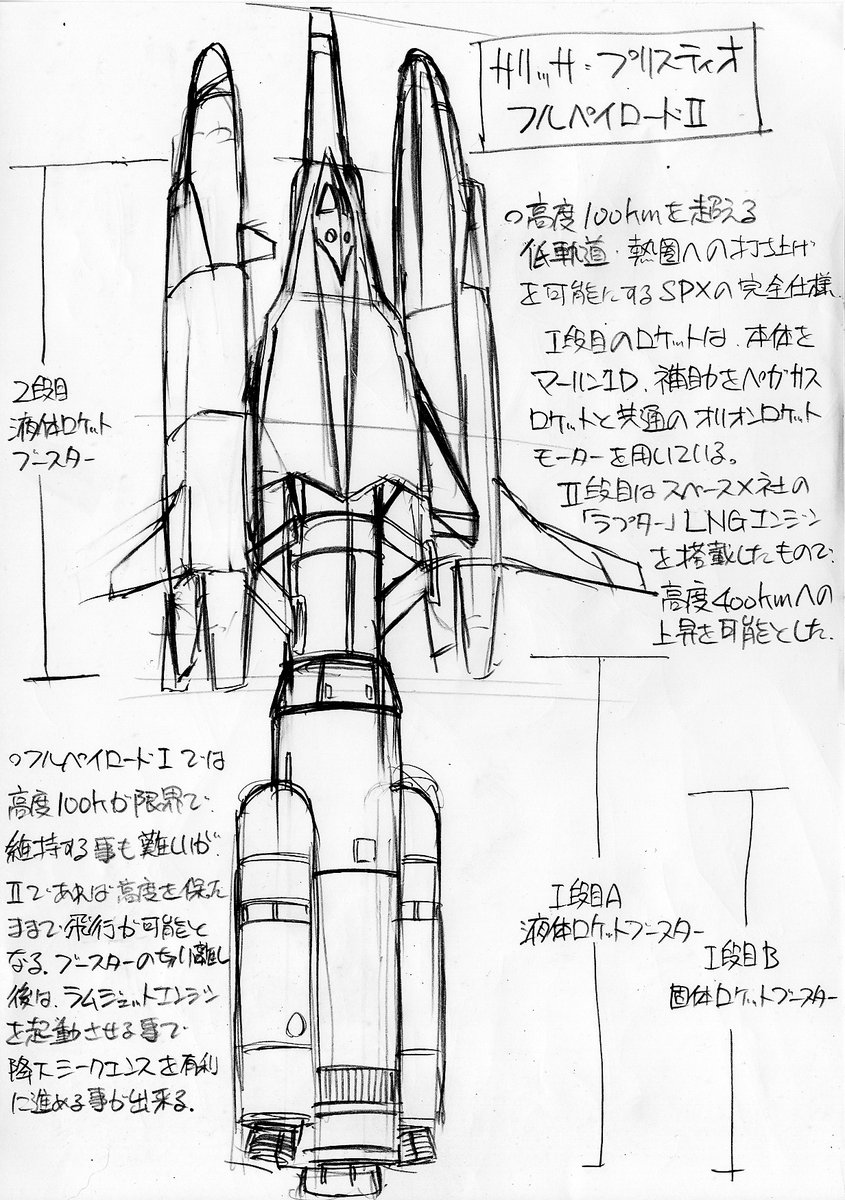 サリッサ・プリスティオ
フルペイロードⅡ
○高度100kmを超える
低軌道・熱圏への打上げ
を可能にするSPXの完全仕様
Ⅰ段目のロケットは、本体を
マーリン1D、補助をペガサス
ロケットと共通のオリオンロケット
モーターを用いている。
Ⅱ段目はスペースX社の
「ラプター」LNGエンジン
を搭載したもので、
高度400kmへの
上昇を可能とした。
2段目
液体ロケット
ブースター
○フルペイロードⅠでは
高度100kが限界で、
維持する事も難しいが、
Ⅱであれば高度を保った
ままで飛行が可能と
なる。ブースターの切り離し
後は、ラムジェットエンジン
を起動させる事で
降下シークエンスを有利
に進める事が出来る。
Ⅰ段目A
液体ロケットブースター
Ⅰ段目B
固体ロケットブースター